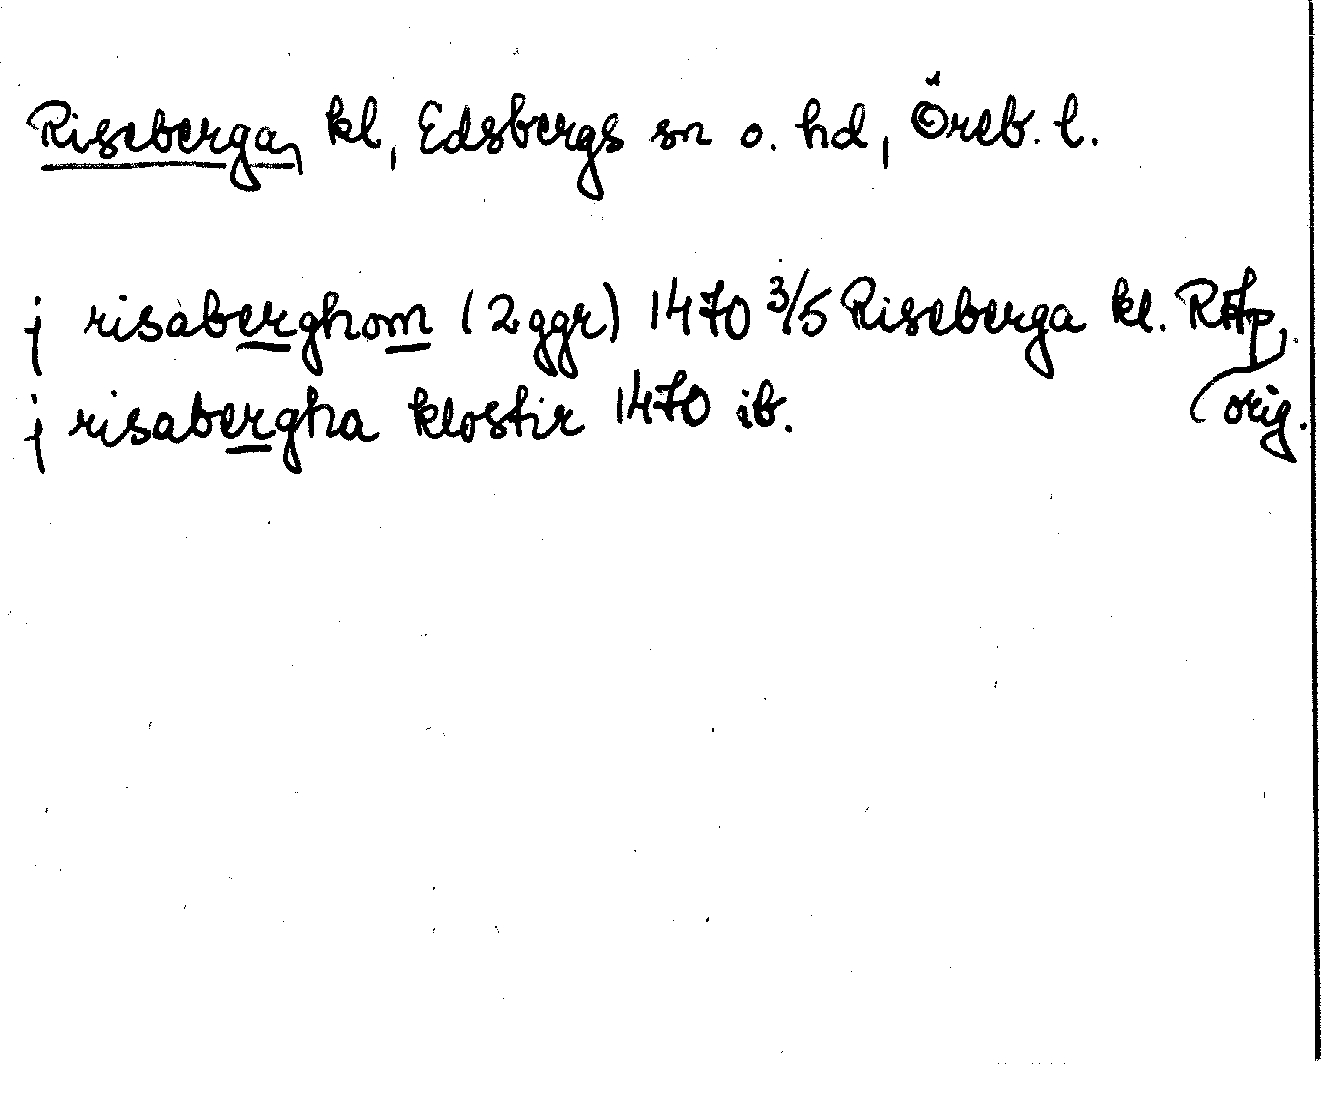 Riseberga, kl, Edsbergs sn o. hd, Öreb. l.
j risaberghom (2 ggr) 1470 3/5 Riseberga kl. RAp,
j risabergha klostir 1470 ib. orig.